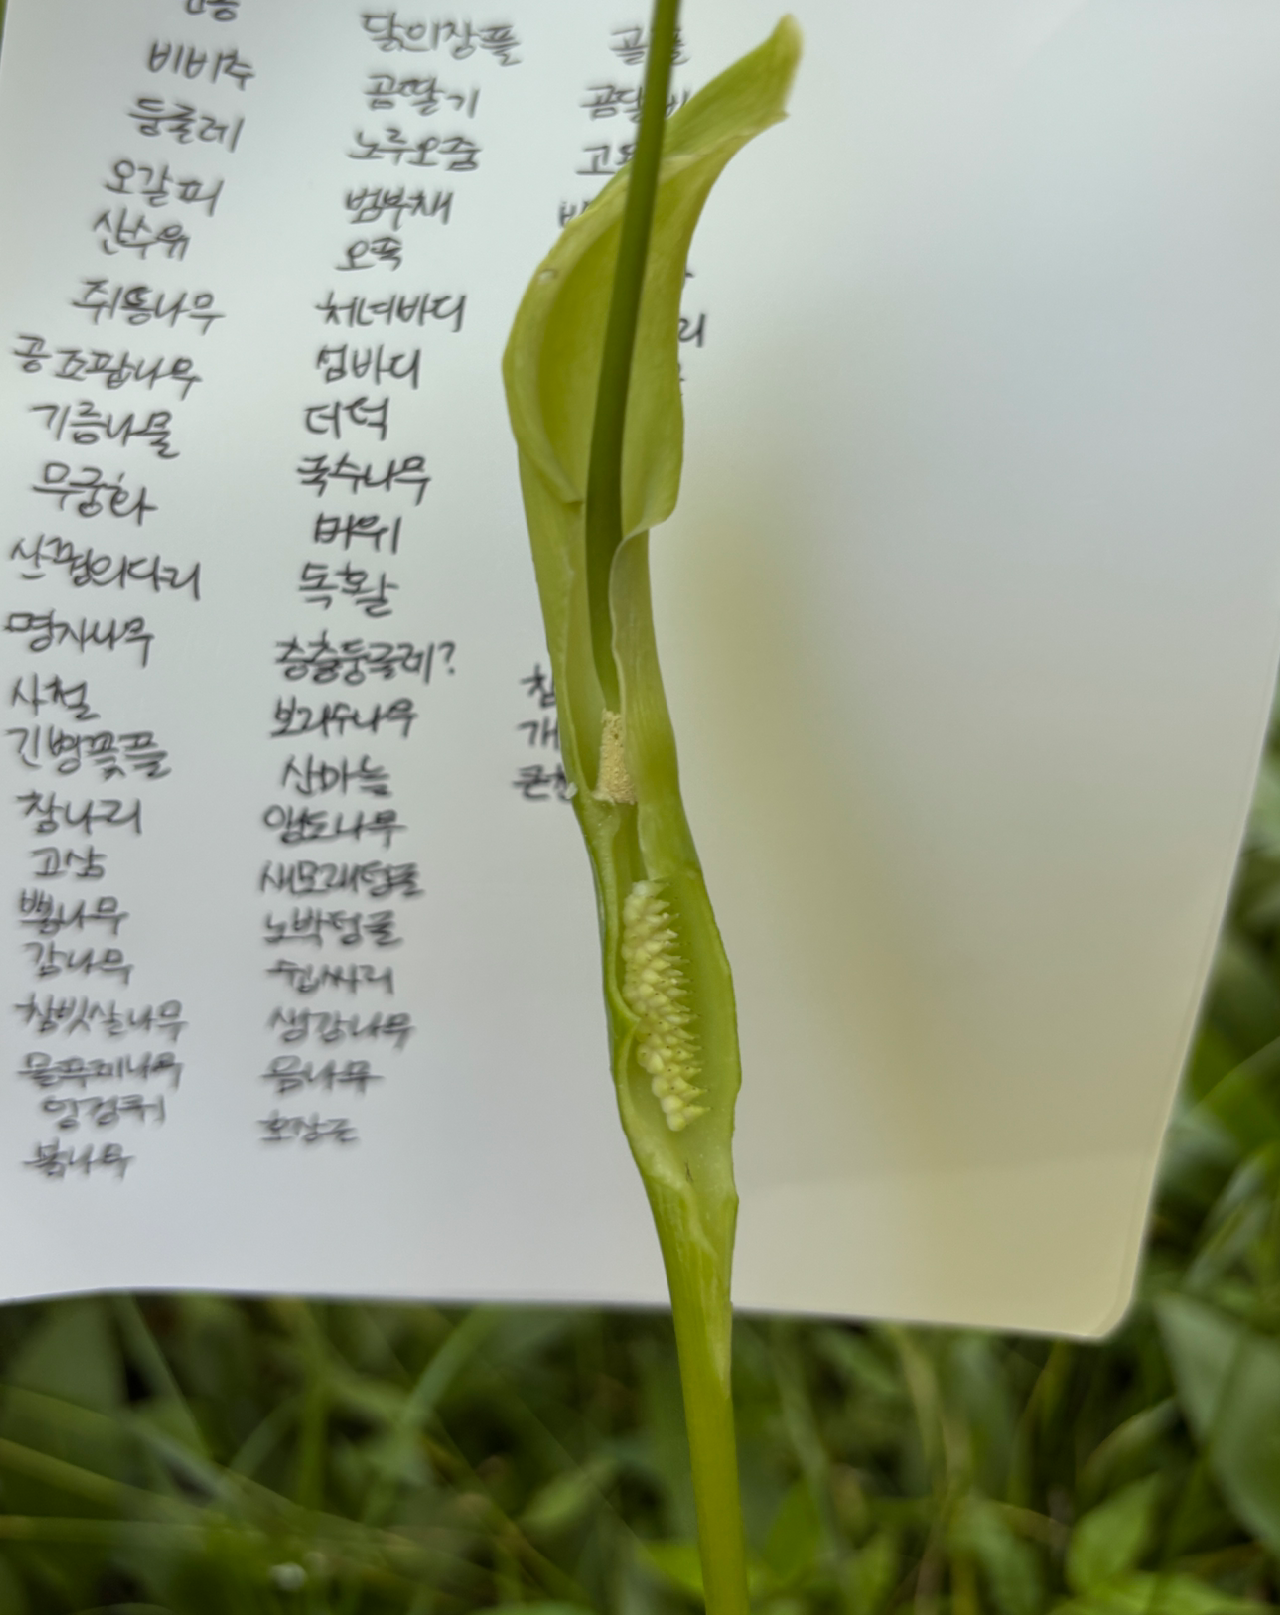 비비추
둥굴레
오갈피
산수유
쥐똥나무
공조팝나무
기름나물
무궁화
산꿩의다리
명자나무
사철
긴병꽃풀
참나리
고삼
뽕나무
감나무
참빗살나무
물푸레나무
엉겅퀴
붉나무
닭의장풀
곰딸기
노루오줌
범부채
오죽
처녀바디
섬바디
더덕
국수나무
머위
독활
층층둥굴레?
보리수나무
산마늘
앵도나무
새모래덩굴
노박덩굴
쉽싸리
생강나무
음나무
호장근